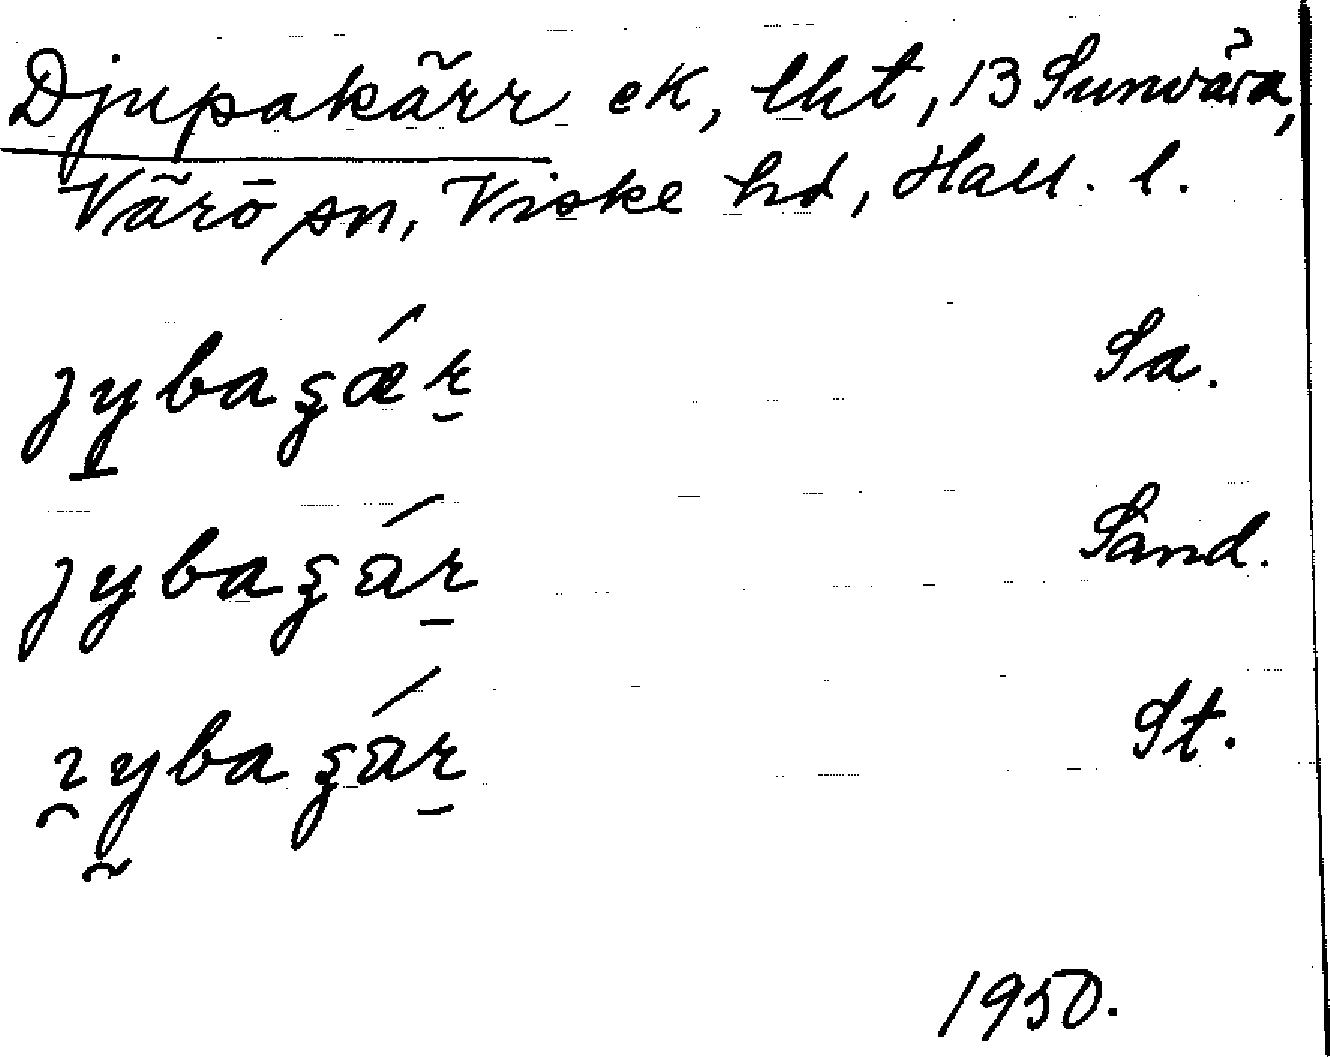 Djupakärr ek, lht, 13 Sunvära,
Värö sn, Viske hd, Hall. l.
ȷybagǽr Sa.
ȷybagár Sand.
ybagár St.
1950.